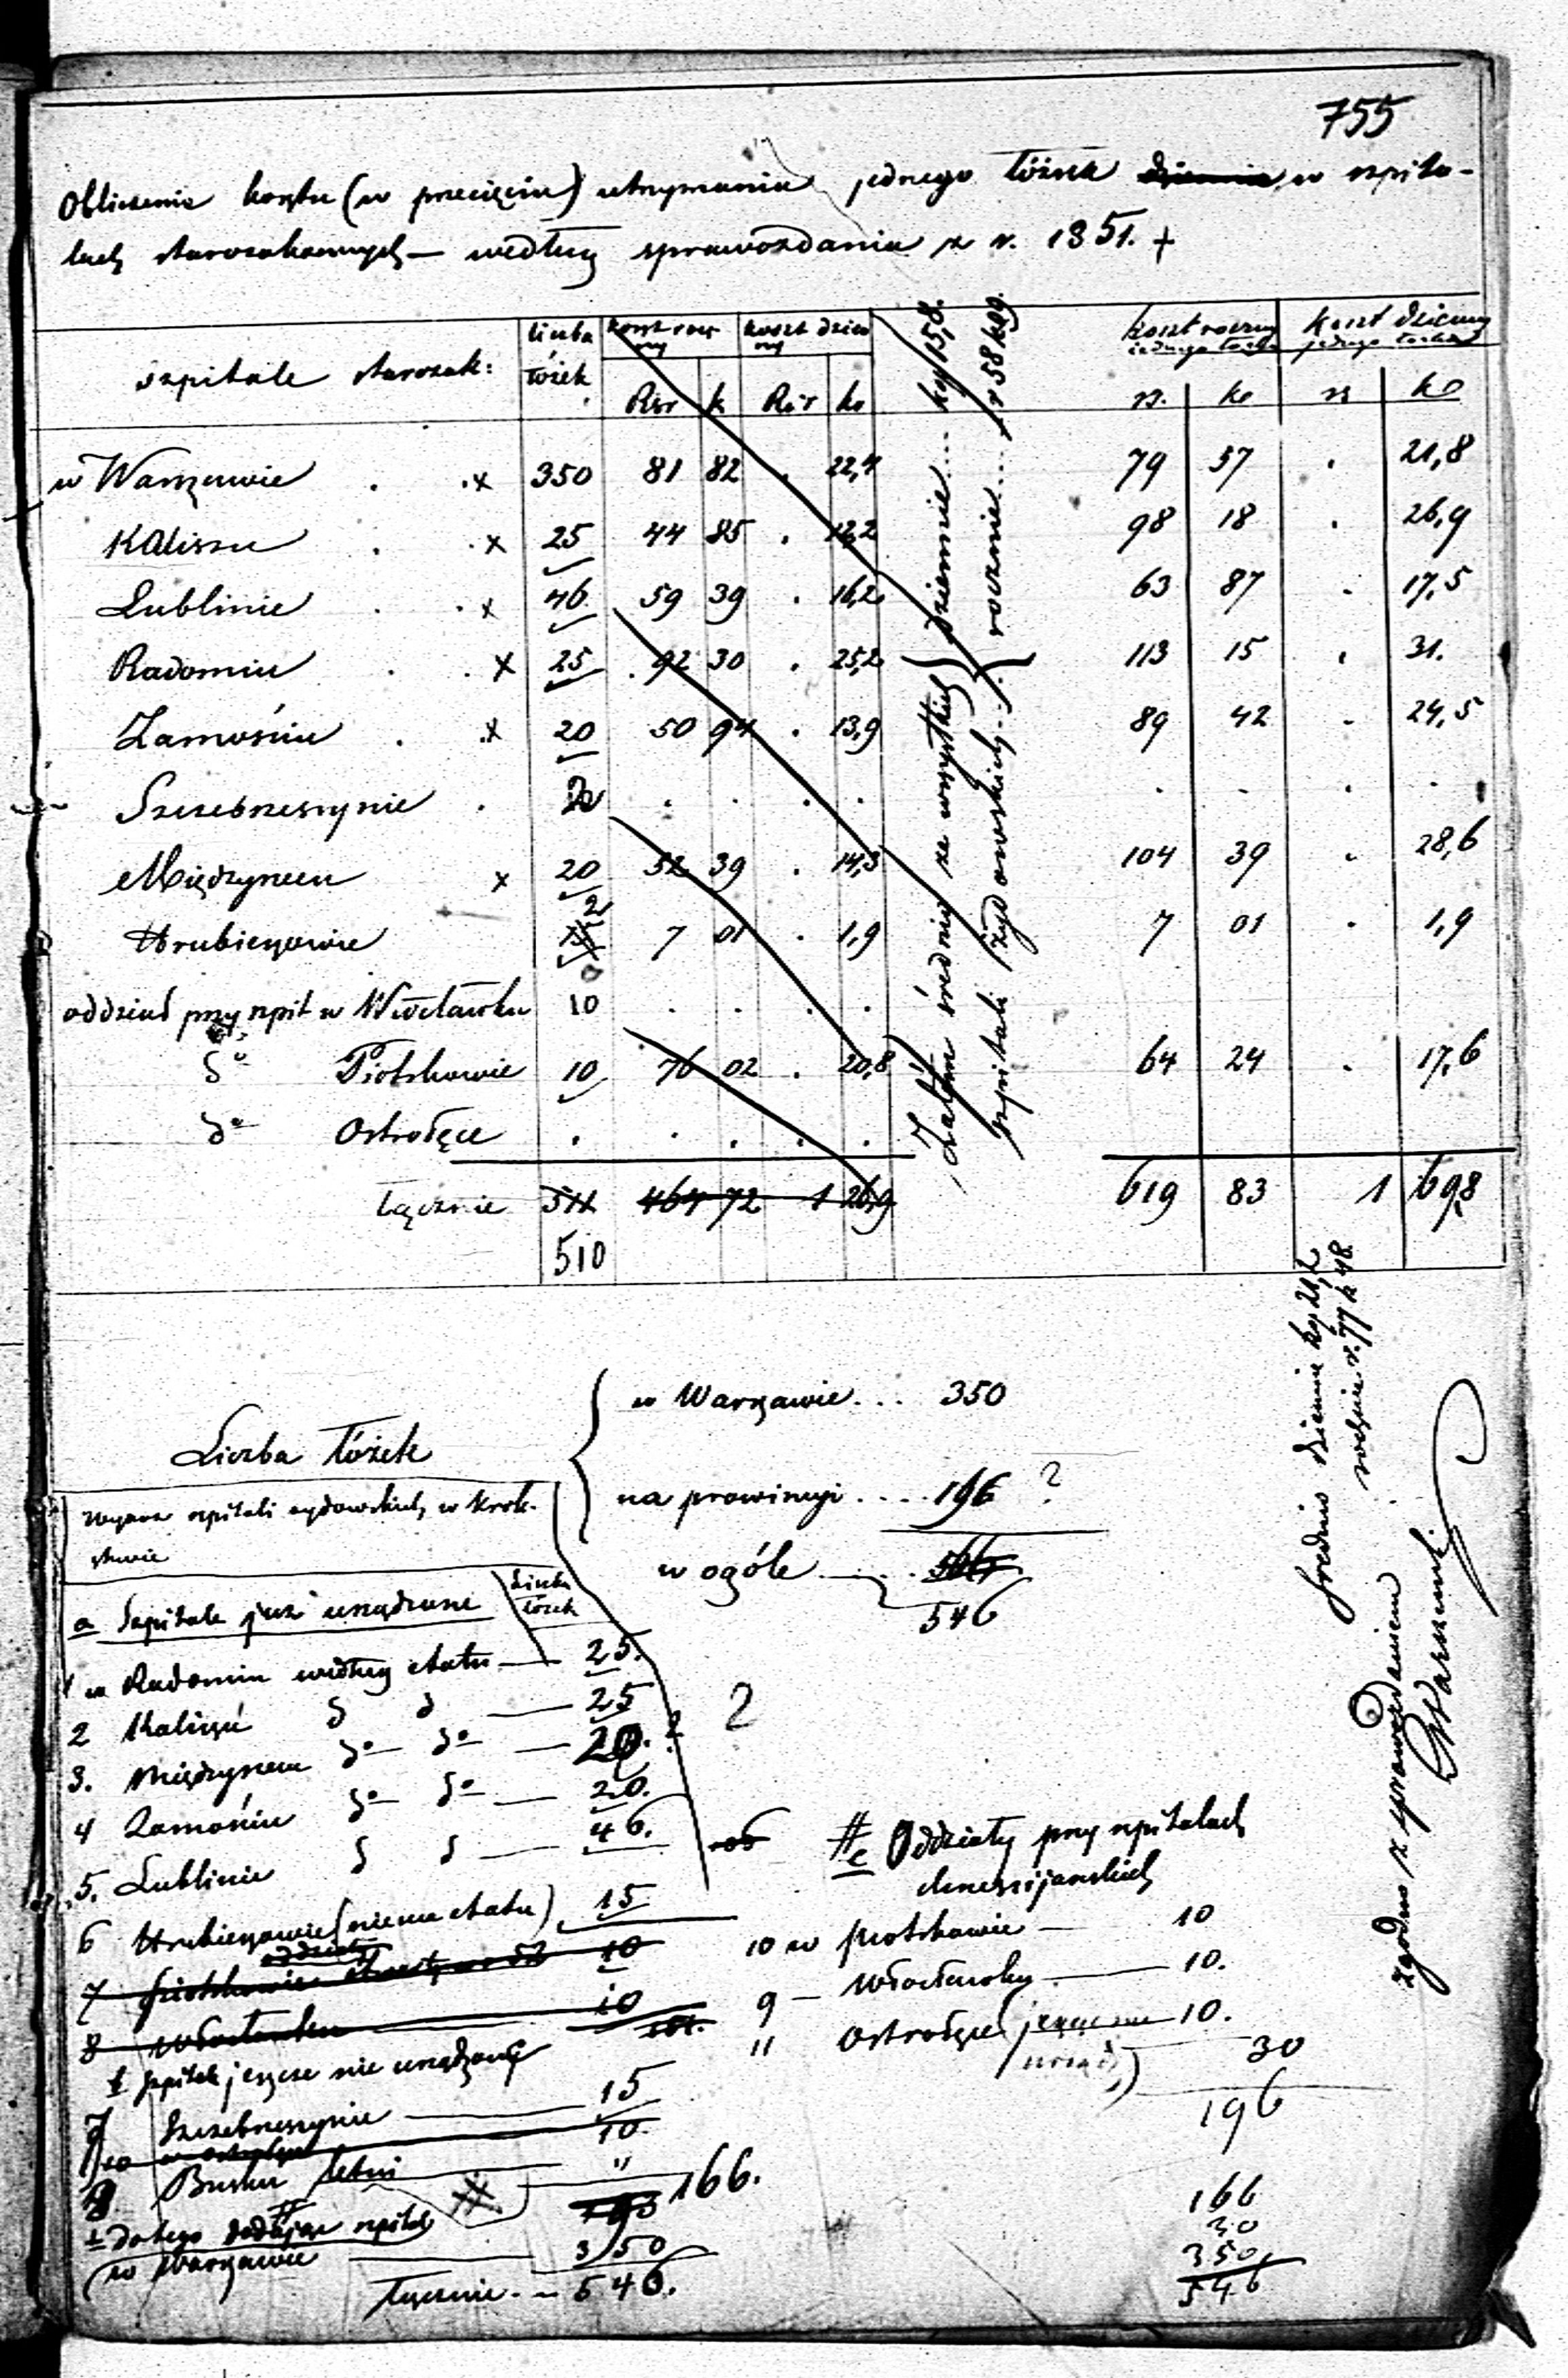 755
Obliczenie kosztu (w przecięciu) utrzymania jednego łóżka dziennie w szpita-
lach starozakonnych — według sprawozdania z r. 1851. +
szpitale starozak: liczba łóżek koszt rocz ny koszt dzien ny koszt roczny jednego łóżka koszt dzienny jednego łóżka
Rsr k Rsr k rs. ko rs ko
w Warszawie . . x 350 81 82 . 22,4 79 57 . 21,8
Kaliszu . . x 25 44 85 . 12,2 98 18 . 26,9
Lublinie . . x 46 59 39 . 16,2 63 87 . 17,5
Radomiu . . x 25 . 92 30 . 25,2 113 15 . 31.
Zamościu . . x 20 50 94 . 13,9 89 42 . 24,5
Szczebrzeszynie . . . . . . . . .
Międzyrzecu x 20 52 39 . 14,3 104 39 . 28,6
Hrubieszowie 2 7 01 . 1,9 7 01 . 1,9
oddział przy szpit w Włocławku 10 . . . .
do Piotrkowie 10 76 02 . 20,8 64 24 . 17,6
do Ostrołęce . . . . .
łącznie 511 464 72 1 26,9 619 83 1 69,8
510
Zatem średnio ze wszystkich szpitali żydowskich } dziennie .... kop 15,8.
rocznie .... r 58 k 09.
średnio dziennie kop 21,2
rocznie r. 77 k 48
Liczba łóżek
w Warszawie . . . 350
na prowincyi . . . . 196 ?
w ogóle . . . .
546
Wykaz szpitali żydowskich w Król-
stwie
a Szpitale już urządzone Liczba łóżek
1 w Radomiu według etatu — 25.
2 Kaliszu d d — 25 2
3. Międzyrzecu do do — 20. ?
4 Zamościu do do — 20.
5. Lublinie d d — 46.
6 Hrubieszowie (niema etatu) 15
7 Piotrkowie 10
8 Włocławku 10
b szpitale jeszcze nie urządzone
7 Szczebrzeszynie — 15
10 w Ostrołęce 10.
Busku letni — " 166.
do tego dodając szpital
w Warszawie — 350
łącznie — 546.
# c Oddziały przy szpitalach
chrześcijańskich
10 w Piotrkowie — 10
9 — Włocławku — 10.
11 Ostrołęce (jeszcze nie 10.
urządz) 30
196
166
30
350
546
zgodno z sprawozdaniem